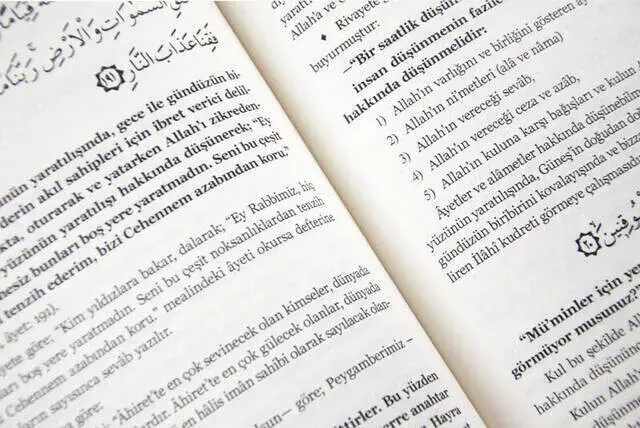 السَّمٰوَاتِ وَالْاَرْضِ رَبَّنَا مَا
فَقِنَا عَذَابَ النَّارِ ﴿١٩١﴾
nün yaratılışında, gece ile gündüzün bi-
derin akıl sahipleri için ibret verici delil-
kta, oturarak ve yatarken Allah'ı zikreden-
yüzünün yaratılışı hakkında düşünerek; "Ey
nesiz bunları boş yere yaratmadın. Seni bu çeşit
tenzih ederim, bizi Cehennem azabından koru."
âyet: 191).
yete göre; "Kim yıldızlara bakar, dalarak; "Ey Rabbimiz, hiç
boş yere yaratmadın. Seni bu çeşit noksanlıklardan tenzih
Cehennem azabından koru." mealindeki âyeti okursa defterine
ların sayısınca sevâb yazılır.
göre:
"Âhiret'te en çok sevinecek olan kimseler, dünyada
lardır. Âhiret'te en çok gülecek olanlar, dünyada
en hâlis imân sahibi olarak sayılacak olan-
olsun— göre; Peygamberimiz –
ittirler. Bu yüzden
erre anahtar
Hayra
yaratı
Allah'a ve
♦ Rivayete
buyurmuştur:
—"Bir saatlik düşün
insan düşünmenin fazile
hakkında düşünmelidir:
1) Allah'ın varlığını ve birliğini gösteren ây
2) Allah'ın ni'metleri (alâ ve nâma)
3) Allah'ın vereceği sevâb,
4) Allah'ın vereceği ceza ve azâb,
5) Allah'ın kuluna karşı bağışları ve kulun A
Âyetler ve alâmetler hakkında düşünebilme
yüzünün yaratılışında. Güneş'in doğudan do
gündüzün biribirini kovalayışında ve bizza
liren İlâhî kudreti görmeye çalışması
﴿٢٠﴾
"Mü'minler için ye
görmüyor musunuz
Kul bu şekilde A
hakkında düşünme